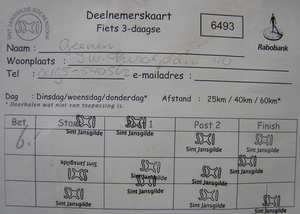 SINT JANSGILDE
Deelnemerskaart
Fiets 3-daagse
6493
Rabobank
Naam : Geenen
Woonplaats :
Tel : e-mailadres :
Dag : Dinsdag/woensdag/donderdag* Afstand : 25km / 40km / 60km*
* Doorhalen wat niet van toepassing is.
Bet. Sta Post 2 Finish
6,-
Sint Jansgilde Sint Jansgilde
Sint Jansgilde Sint Jansgilde
Sint Jansgilde
Sint Jansgilde Sint Jansgilde
Sint Jansgilde Sint Jansgilde
Sint Jansgilde Sint Jansgilde